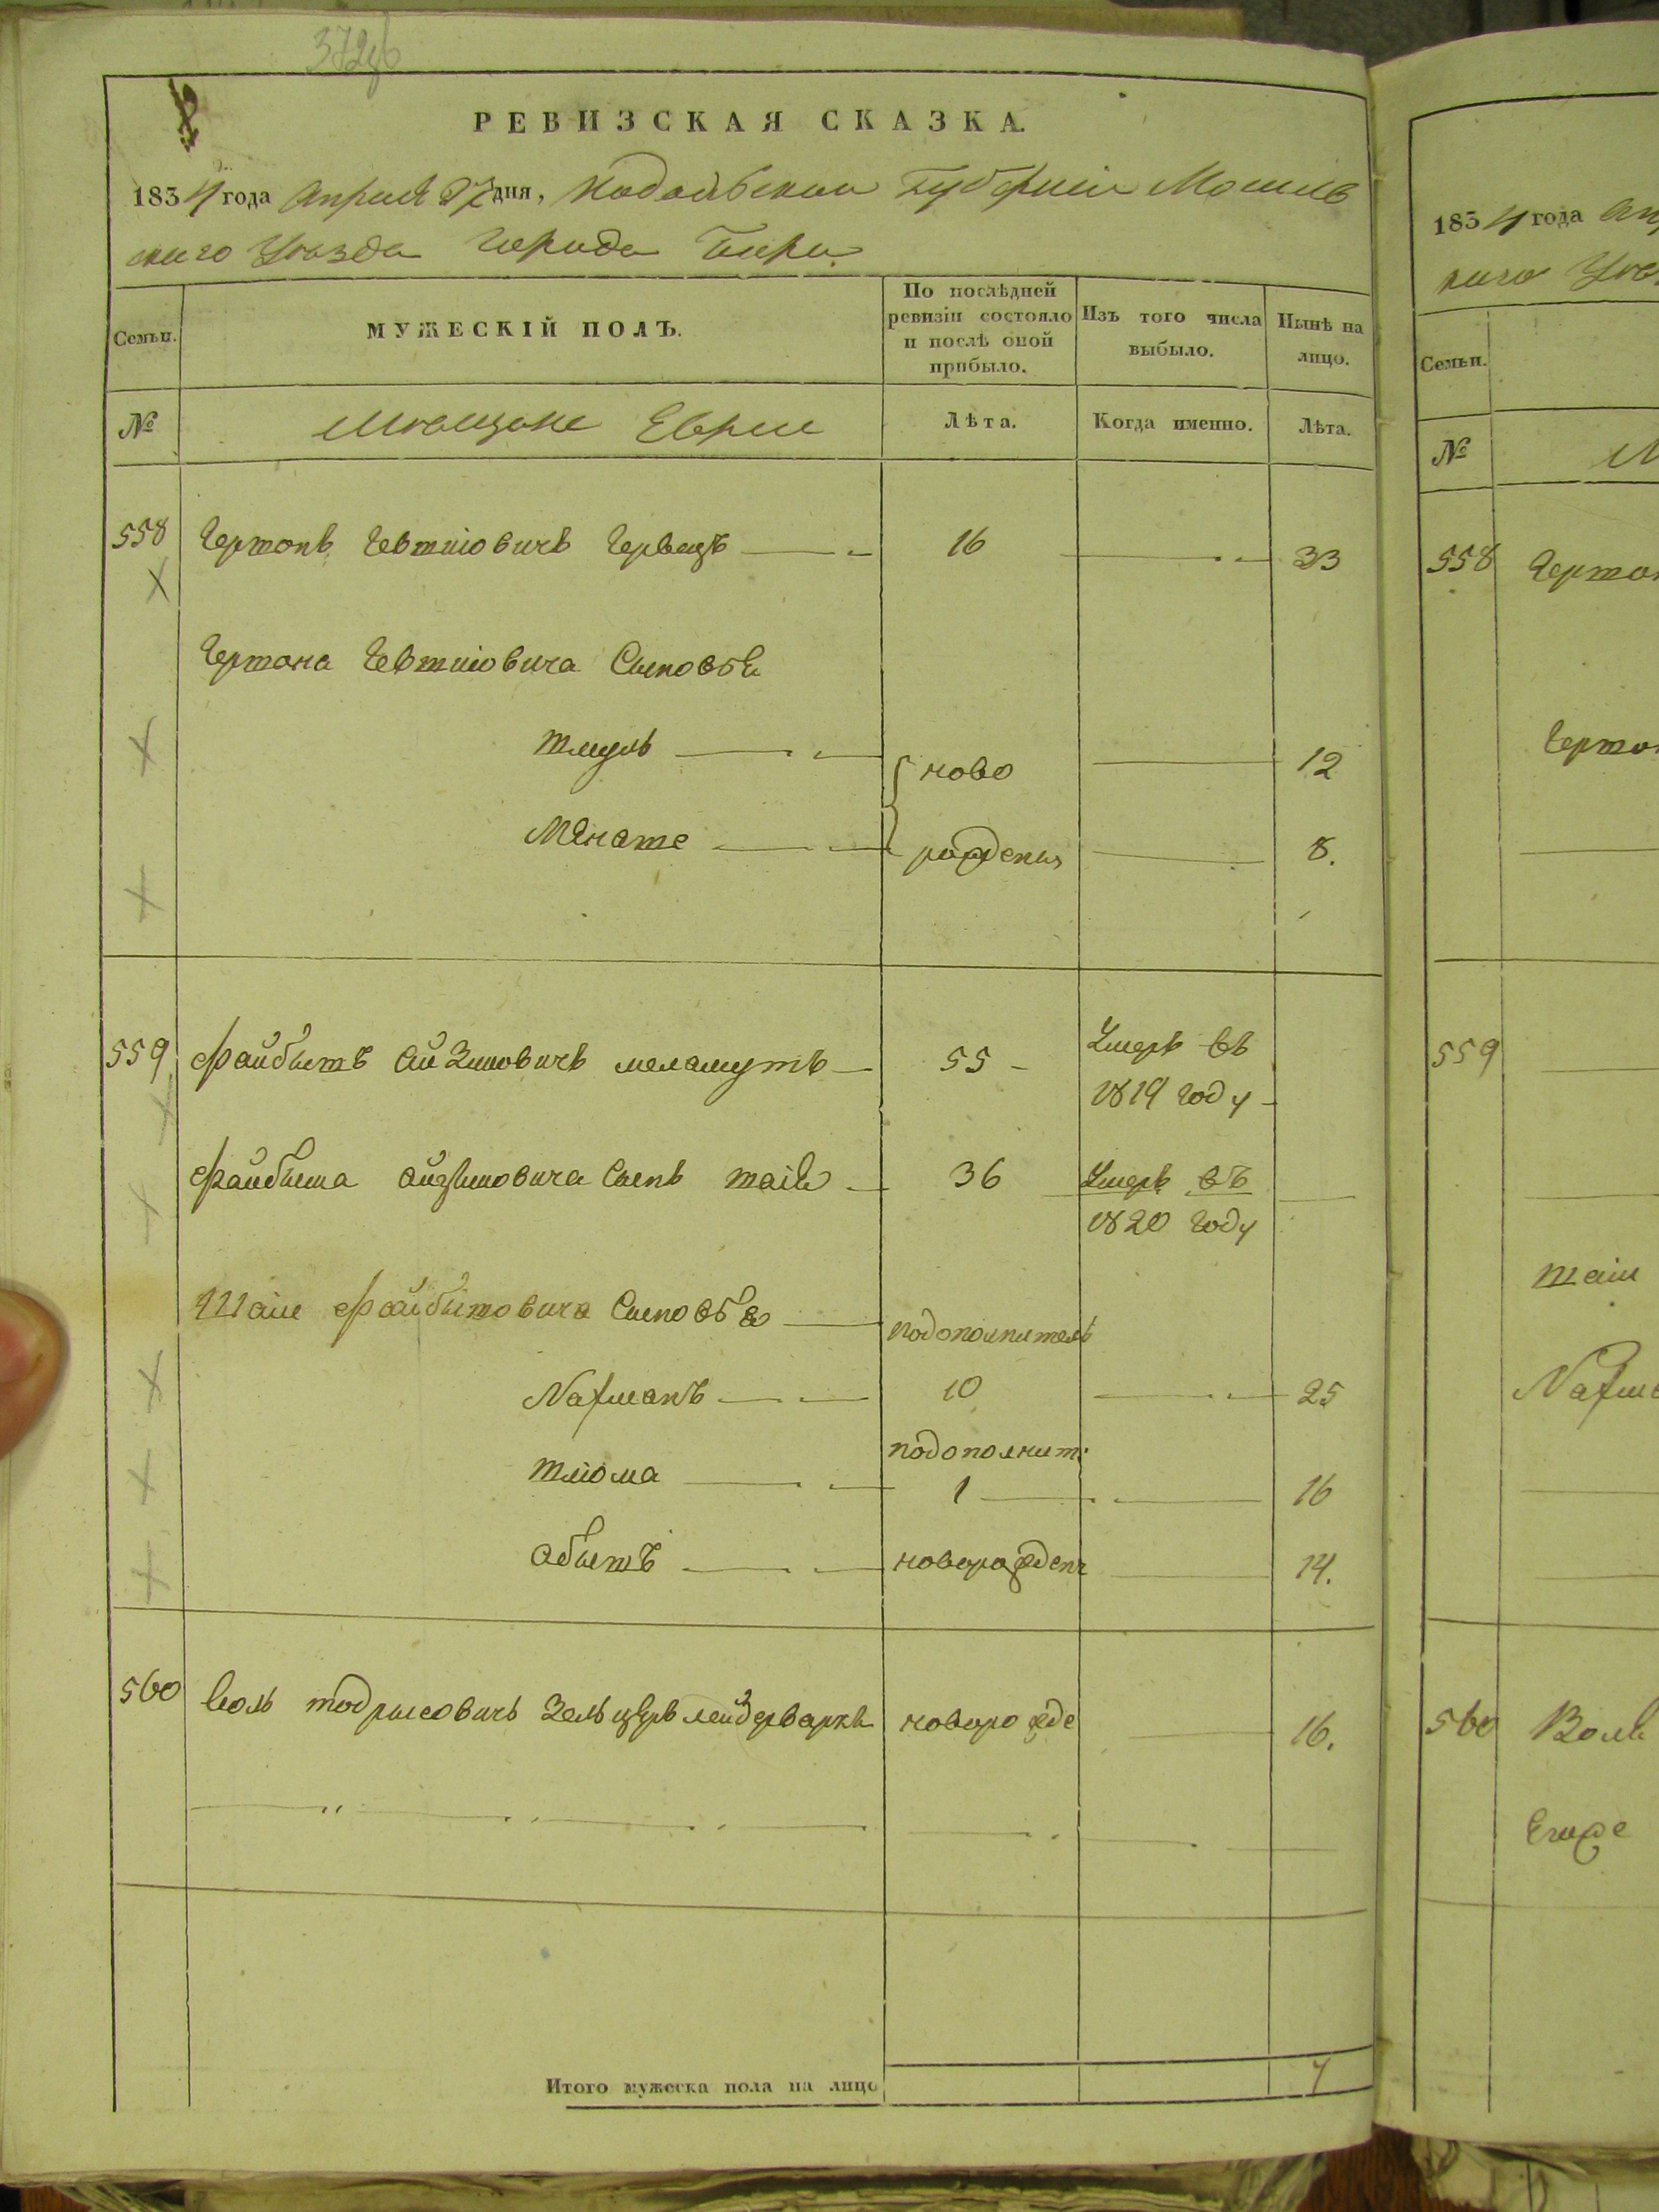 РЕВИЗСКАЯ СКАЗКА.
1834 года Апреля 27 дня, Подольской Губернiи Могилев
скаго Уѣзда Города Бара
Семьи. МУЖЕСКIЙ ПОЛЪ. По послѣдней ревизiи состояло и послѣ оной прибыло. Изъ того числа выбыло. Нынѣ на лицо.
№ Мѣщане Евреи Лѣта. Когда именно. Лѣта.
558 Гершонъ 16 33
Гершона Сыновья
Шмуль ново 12
рожденъ 8.
559 Файбишъ Айзиковичъ Меламутъ 55 Умеръ въ
1819 году
Файбиша Айзиковича Сынъ Шаiя 36 Умеръ въ
1820 году
Шаiи Файбишовича Сыновья подополнитель
Нахманъ 10 25
подополнит:
Шлiома 1 16
Абишъ новорожден 14.
560 Воль Тодрисовичъ новорожде 16.
Итого мужеска пола на лицо 7
1834 года Ап
каго Уѣз
Семьи.
№ М
558 Гершон
Гершон
559
Шаiи
Нахма
560 Воль
Егоже